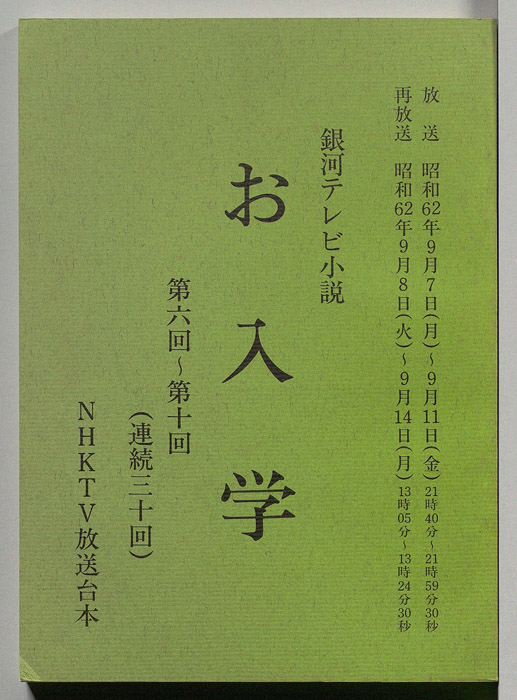 放送 昭和62年9月7日(月)~9月11日(金)21時40分~21時59分30秒
再放送 昭和62年9月8日(火)~9月14日(月)13時05分~13時24分30秒
銀河テレビ小説
お入学
第六回~第十回
(連続三十回)
NHKTV放送台本